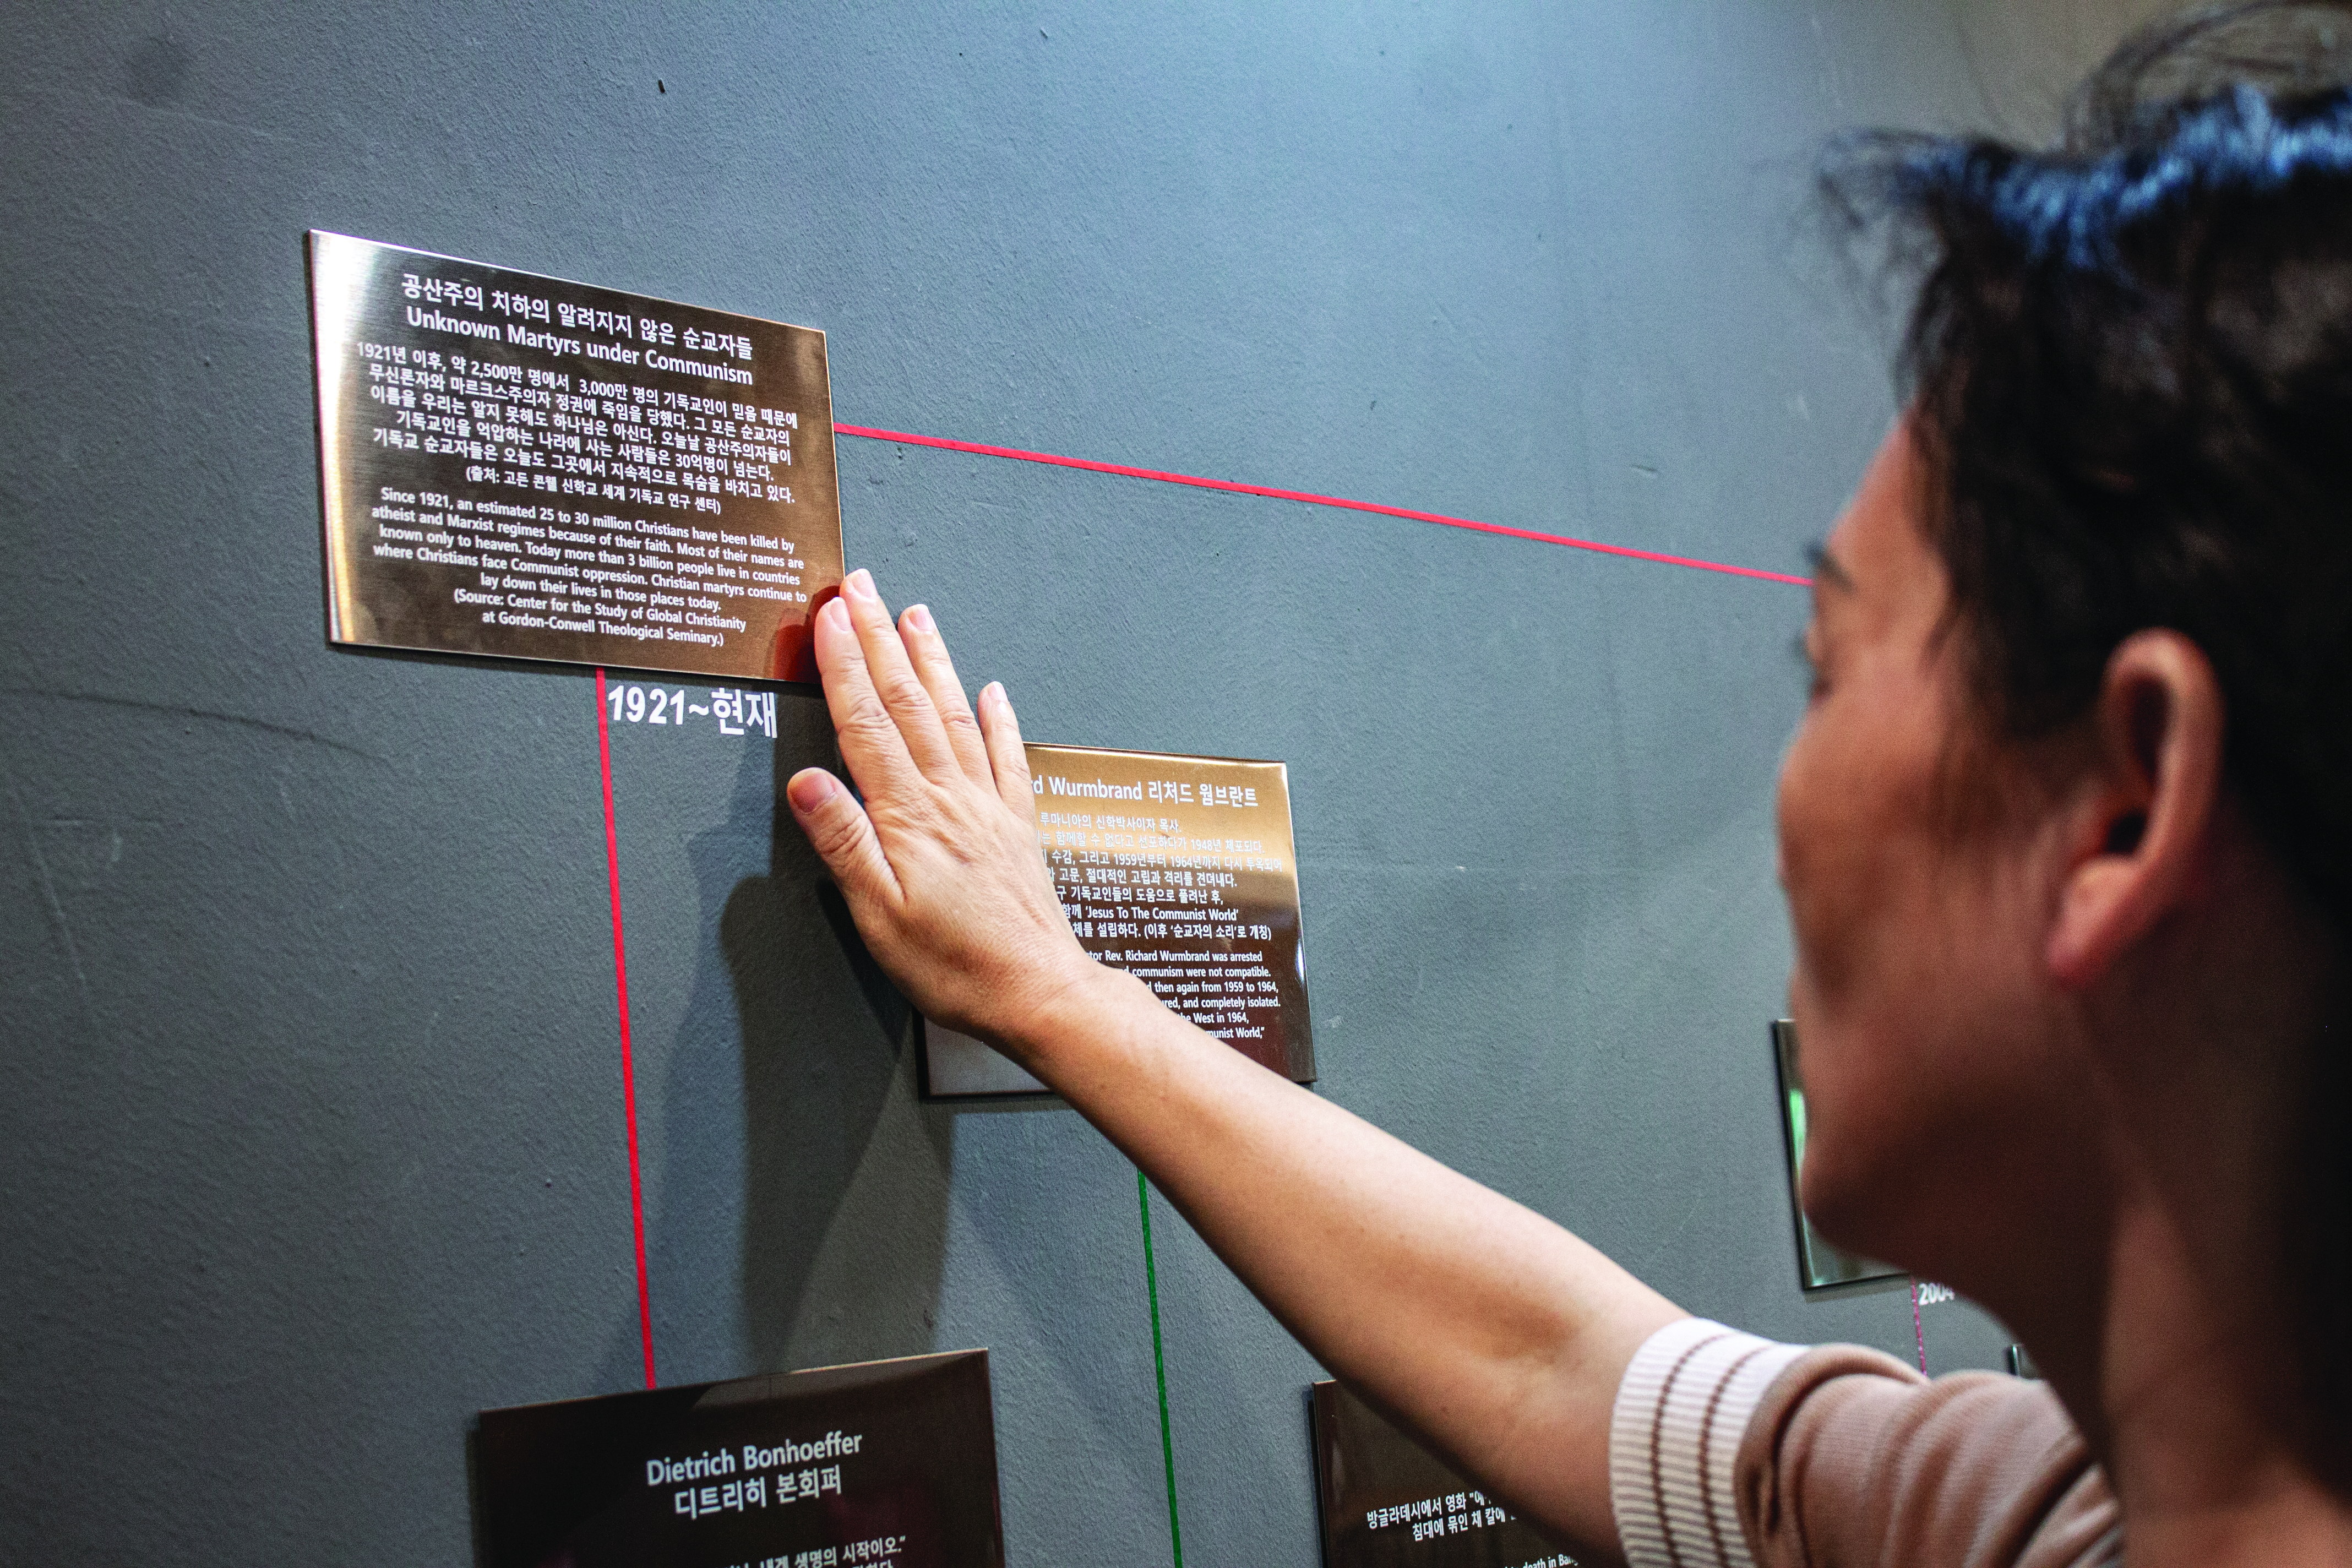 공산주의 치하의 알려지지 않은 순교자들
Unknown Martyrs under Communism
1921년 이후, 약 2,500만 명에서 3,000만 명의 기독교인이 믿음 때문에
무신론자와 마르크스주의자 정권에 죽임을 당했다. 그 모든 순교자의
이름을 우리는 알지 못해도 하나님은 아신다. 오늘날 공산주의자들이
기독교인을 억압하는 나라에 사는 사람들은 30억명이 넘는다.
기독교 순교자들은 오늘도 그곳에서 지속적으로 목숨을 바치고 있다.
(출처: 고든 콘웰 신학교 세계 기독교 연구 센터)
Since 1921, an estimated 25 to 30 million Christians have been killed by
atheist and Marxist regimes because of their faith. Most of their names are
known only to heaven. Today more than 3 billion people live in countries
where Christians face Communist oppression. Christian martyrs continue to
lay down their lives in those places today.
(Source: Center for the Study of Global Christianity
at Gordon-Conwell Theological Seminary.)
1921~현재
Wurmbrand 리처드 웜브란트
루마니아의 신학박사이자 목사.
함께할 수 없다고 선포하다가 1948년 체포되다.
수감, 그리고 1959년부터 1964년까지 다시 투옥되어
고문, 절대적인 고립과 격리를 견뎌내다.
기독교인들의 도움으로 풀려난 후,
함께 'Jesus To The Communist World'
체를 설립하다. (이후 '순교자의 소리'로 개칭)
Rev. Richard Wurmbrand was arrested
communism were not compatible.
then again from 1959 to 1964,
and completely isolated.
the West in 1964,
World,"
2004
Dietrich Bonhoeffer
디트리히 본회퍼
생명의 시작이오."
방글라데시에서 영화
침대에 묶인 채 칼에
death in